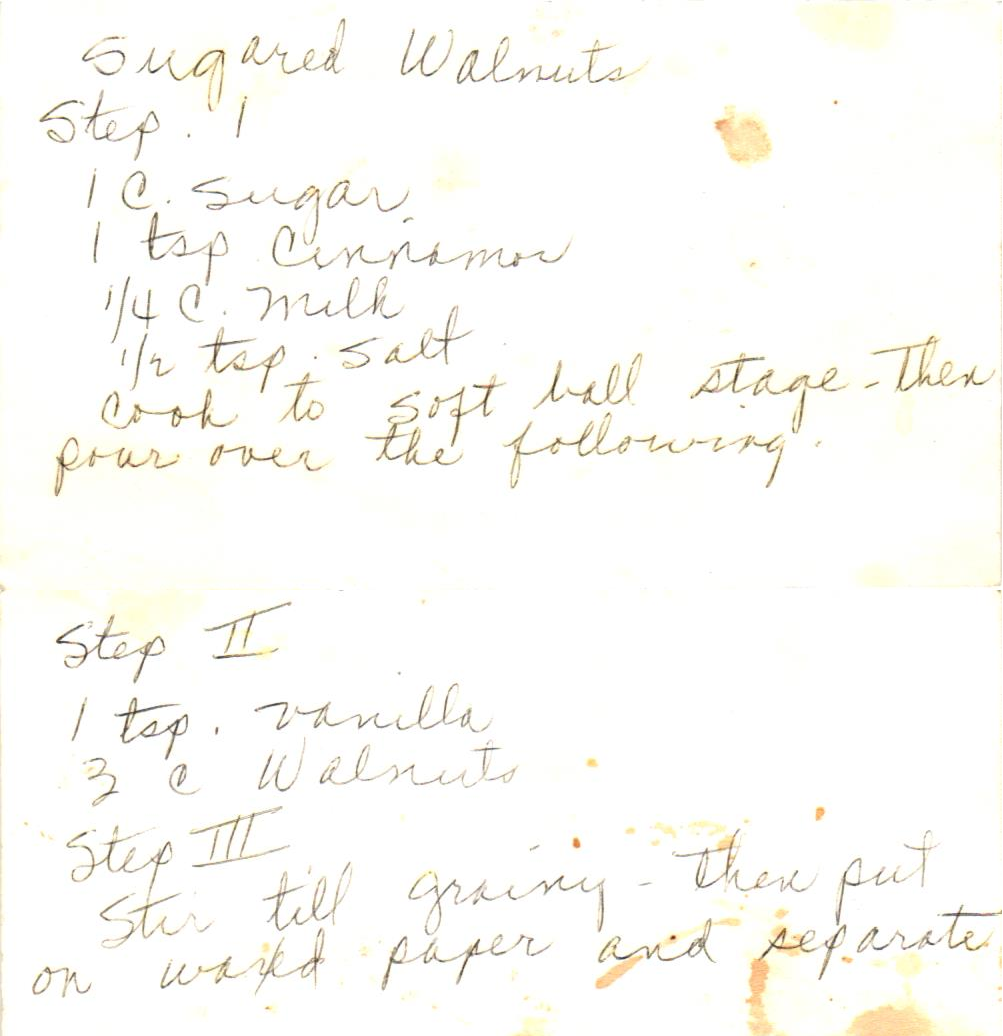 Sugared Walnuts
Step. 1
1 C. Sugar
1 tsp Cinnamon
1/4 C. Milk
1/2 tsp. Salt
Cook to soft ball stage - Then
pour over the following.
Step II
1 tsp. vanilla
3 c Walnuts
Step III
Stir till grainy - Then put
on waxed paper and separate